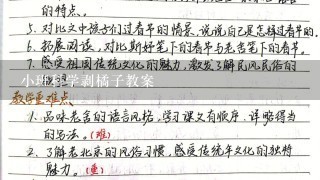 的特点。
5. 对比文中孩子们过春节的情景,说说自己是怎样过春节的。
6. 拓展阅读,对比斯妤笔下的春节与老舍笔下的春节。
7. 感受祖国传统文化的魅力,激发了解民风民俗的
小班科学剥橘子教案
教学重难点
1. 品味老舍的语言风格,学习课文有顺序、详略得当
的写法。(难)
2. 了解老北京的风俗习惯,感受传统年文化的独特
魅力。(重)